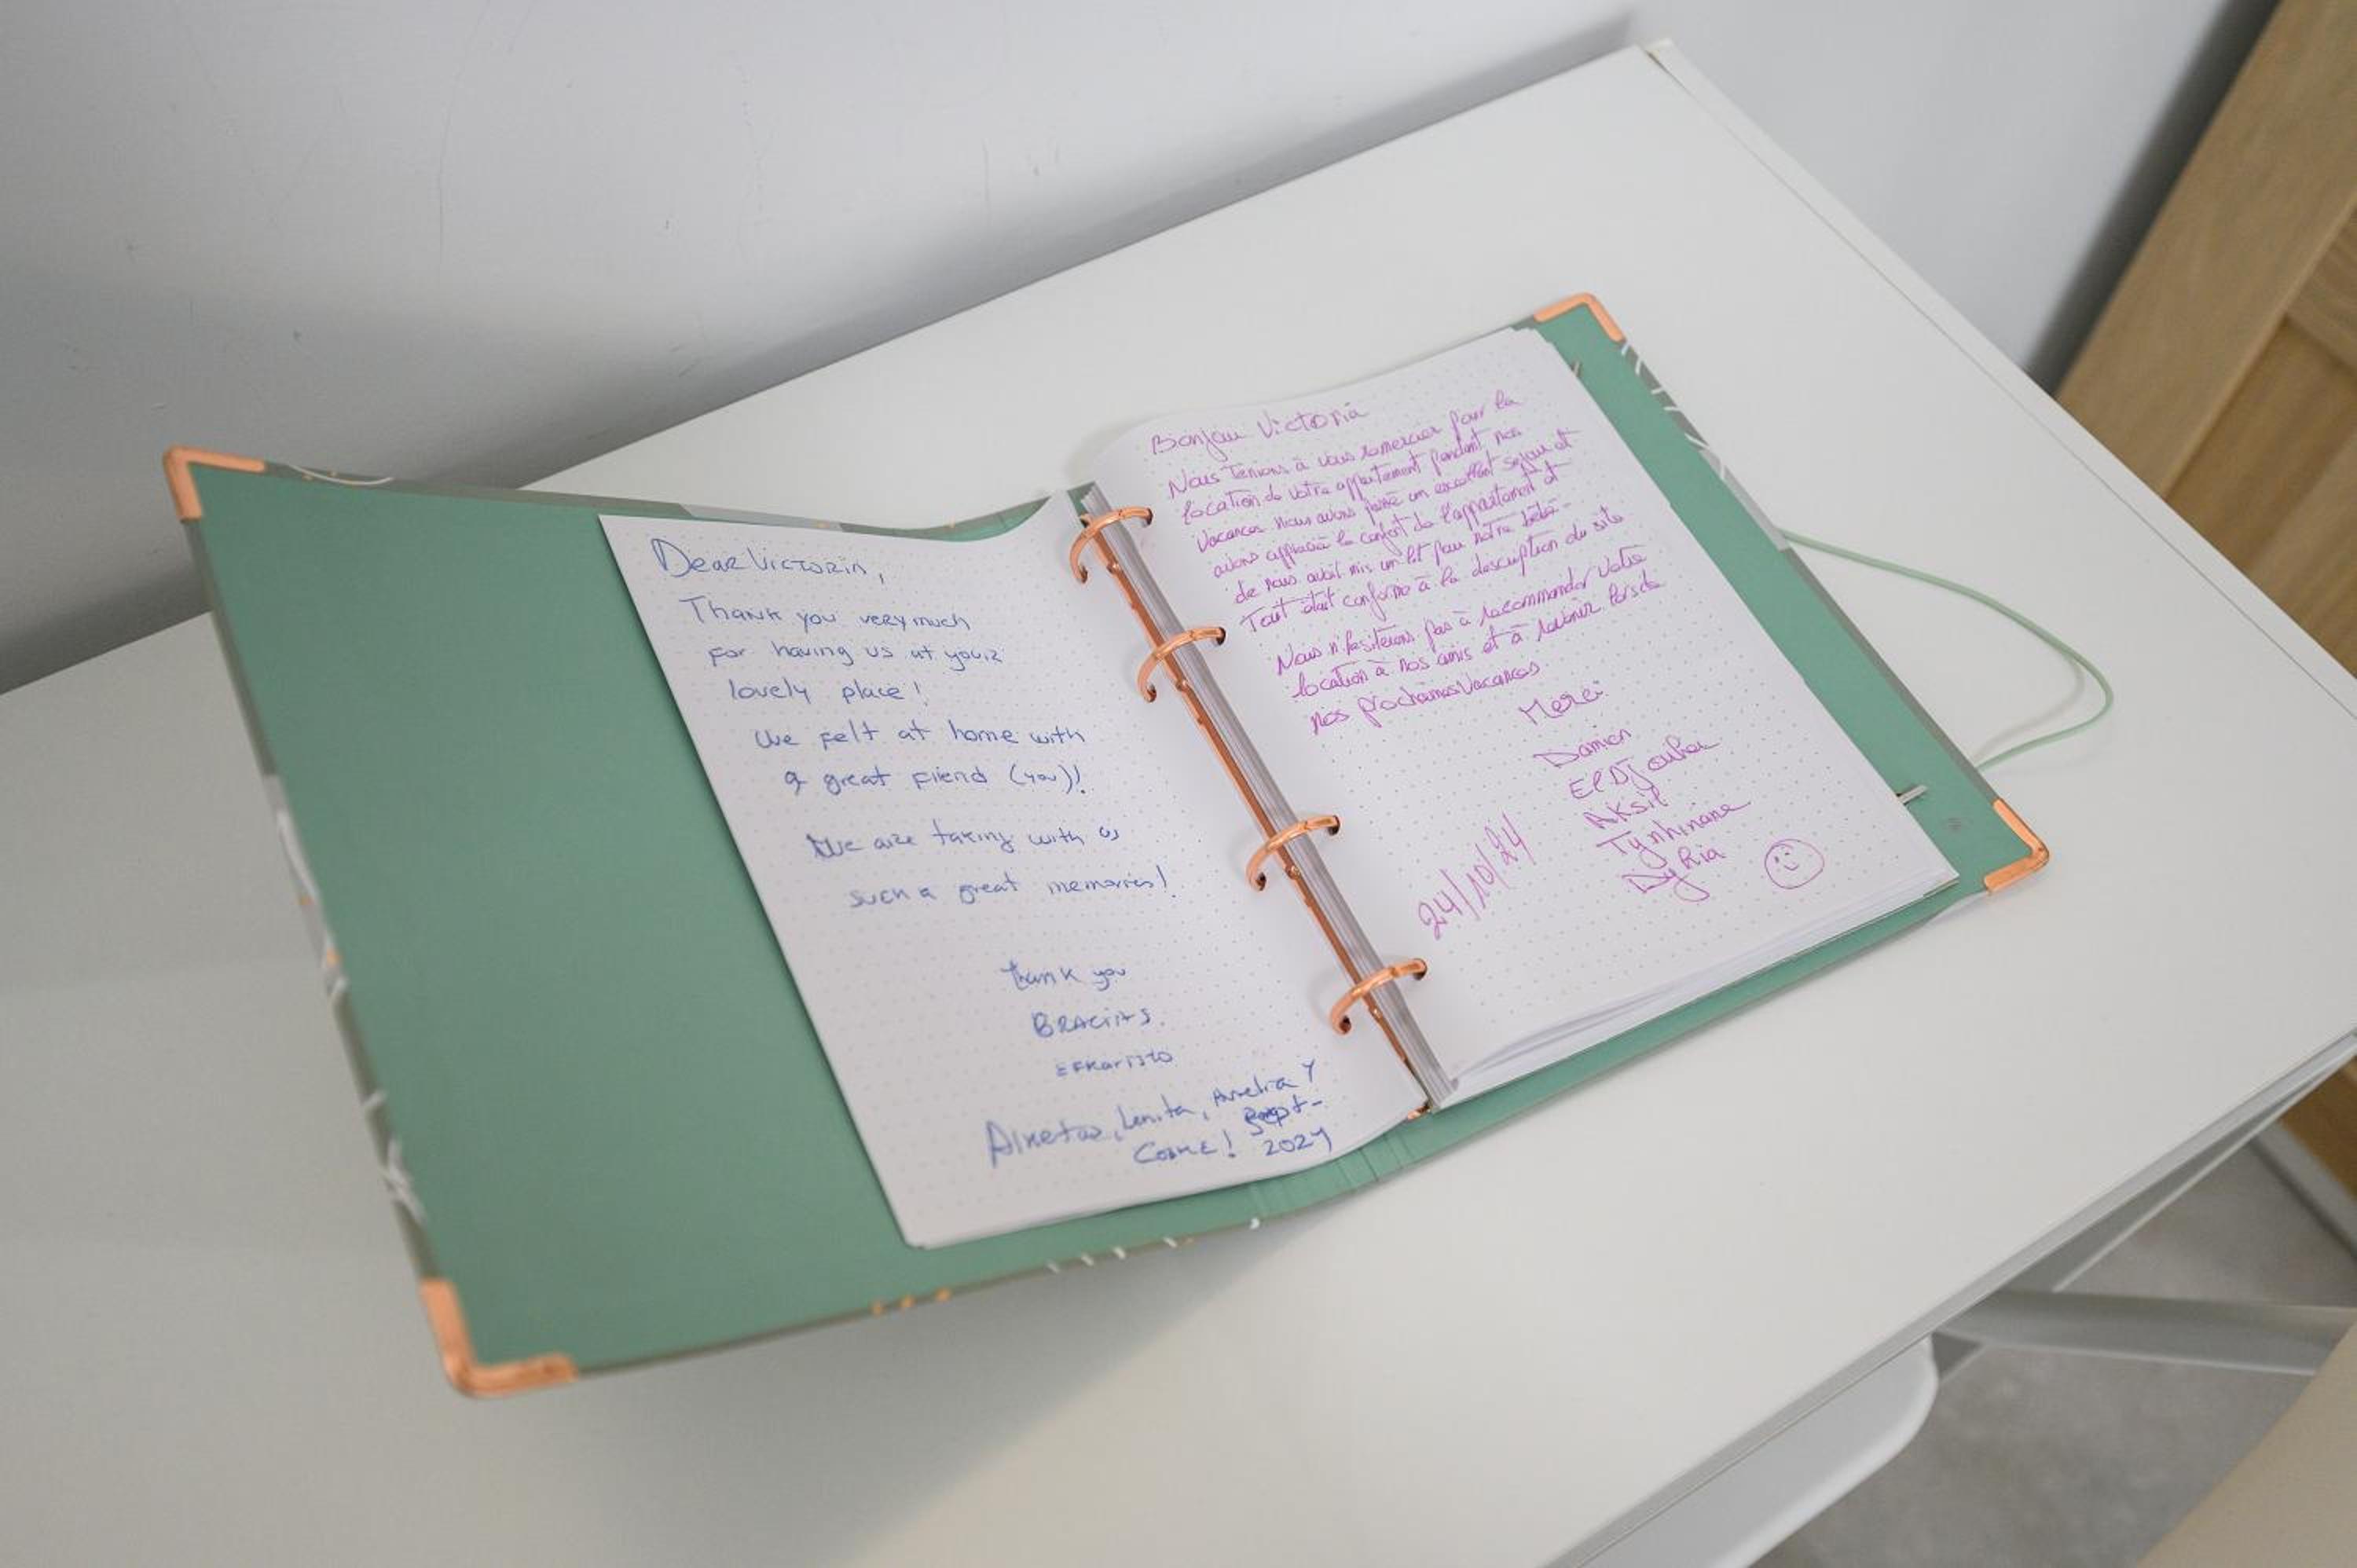 Dear Victoria,
Thank you very much
for having us at your
lovely place!
We felt at home with
a great friend (you)!
We are taking with us
such a great memories!
thank you
Efkaristo
Lenita, Amelia y
Cosme! Sept-
2024
Bonjou Victoria
Nous tenions à vous remercier pour la
location de votre appartement pendant nos
vacances nous avons passé un excellent sejour et
avons apprecié le confort de l'appartement et
de nous avoir mis un lit pour notre bébé.
Tout était conforme à la description du site
Nous n'hesiterons pas à recommander votre
location à nos amis et à revenir lors de
nos prochaines vacances
Merci
Damien
El Djouher
Aksil
Tynhinane
Dyhia
24/10/24